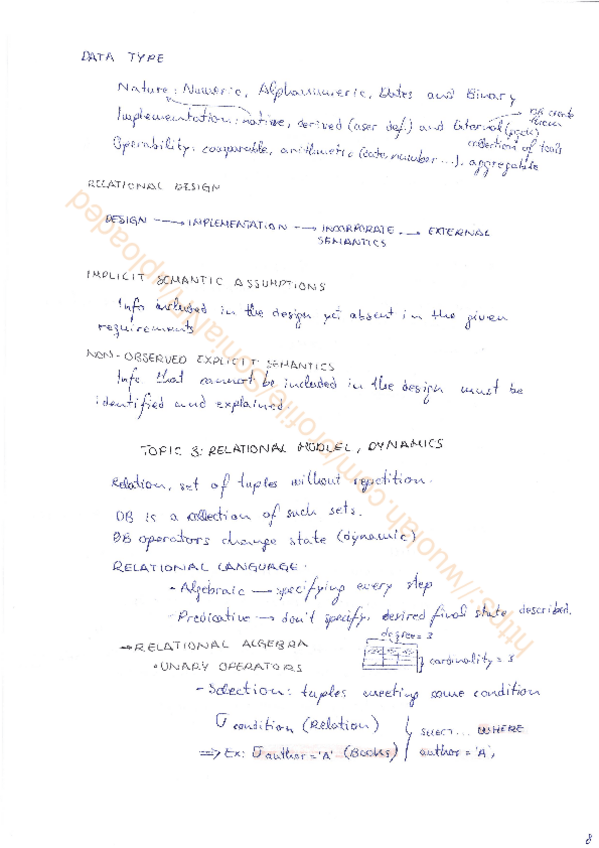 DATA TYPE
Nature: Numeric, Alphanumeric, Dates and Binary
Implementation: native, derived (user def.) and External (pack)
DB create them
collection of tools
Operability: comparable, arithmetic (date, number ...), aggregable
RELATIONAL DESIGN
DESIGN → IMPLEMENTATION → INCORPORATE SEMANTICS → EXTERNAL
IMPLICIT SEMANTIC ASSUMPTIONS
Info included in the design yet absent in the given
requirements
NON-OBSERVED EXPLICIT SEMANTICS
Info that cannot be included in the design must be
identified and explained.
TOPIC 3: RELATIONAL MODEL, DYNAMICS
Relation, set of tuples without repetition.
DB is a collection of such sets.
DB operators change state (dynamic)
RELATIONAL LANGUAGE.
- Algebraic → specifying every step
- Predicative → don't specify, desired final state described.
→ RELATIONAL ALGEBRA
degree = 3
cardinality = 3
· UNARY OPERATORS
- Selection: tuples meeting some condition
σ condition (Relation) SELECT... WHERE
⇒ Ex: σ author = 'A' (Books) author = 'A';
8
https://wuolah.com/profile/SoniaNN/uploaded